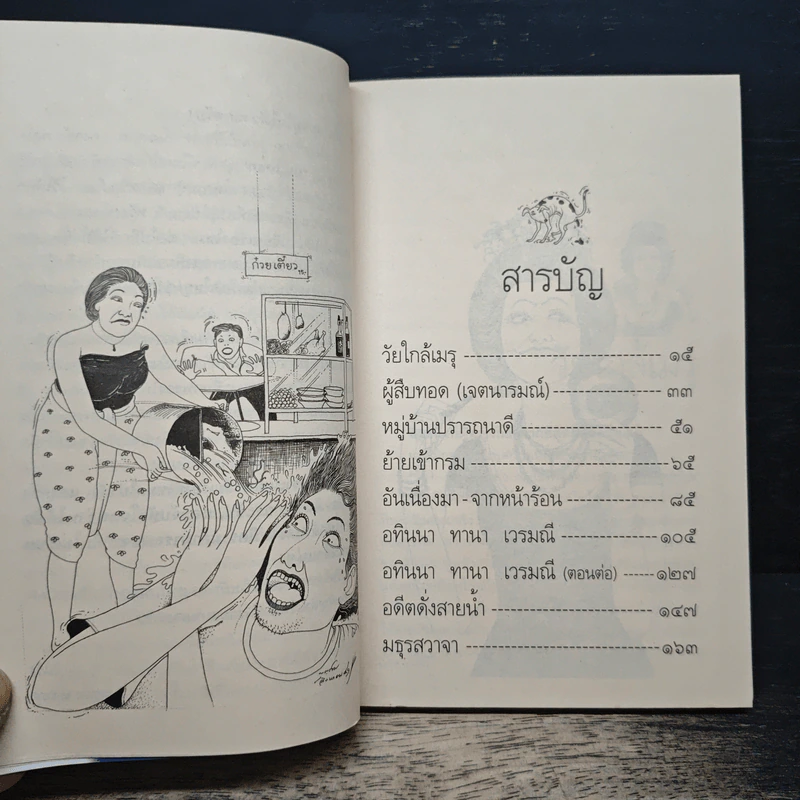 ก๋วยเตี๋ยว
สารบัญ
วัยใกล้เมรุ ๑๕
ผู้สืบทอด (เจตนารมณ์) ๓๓
หมู่บ้านปรารถนาดี ๕๑
ย้ายเข้ากรม ๖๕
อันเนื่องมา - จากหน้าร้อน ๘๕
อทินนา ทานา เวรมณี ๑๐๕
อทินนา ทานา เวรมณี (ตอนต่อ) ๑๒๗
อดีตดั่งสายน้ำ ๑๔๗
มธุรสวาจา ๑๖๓